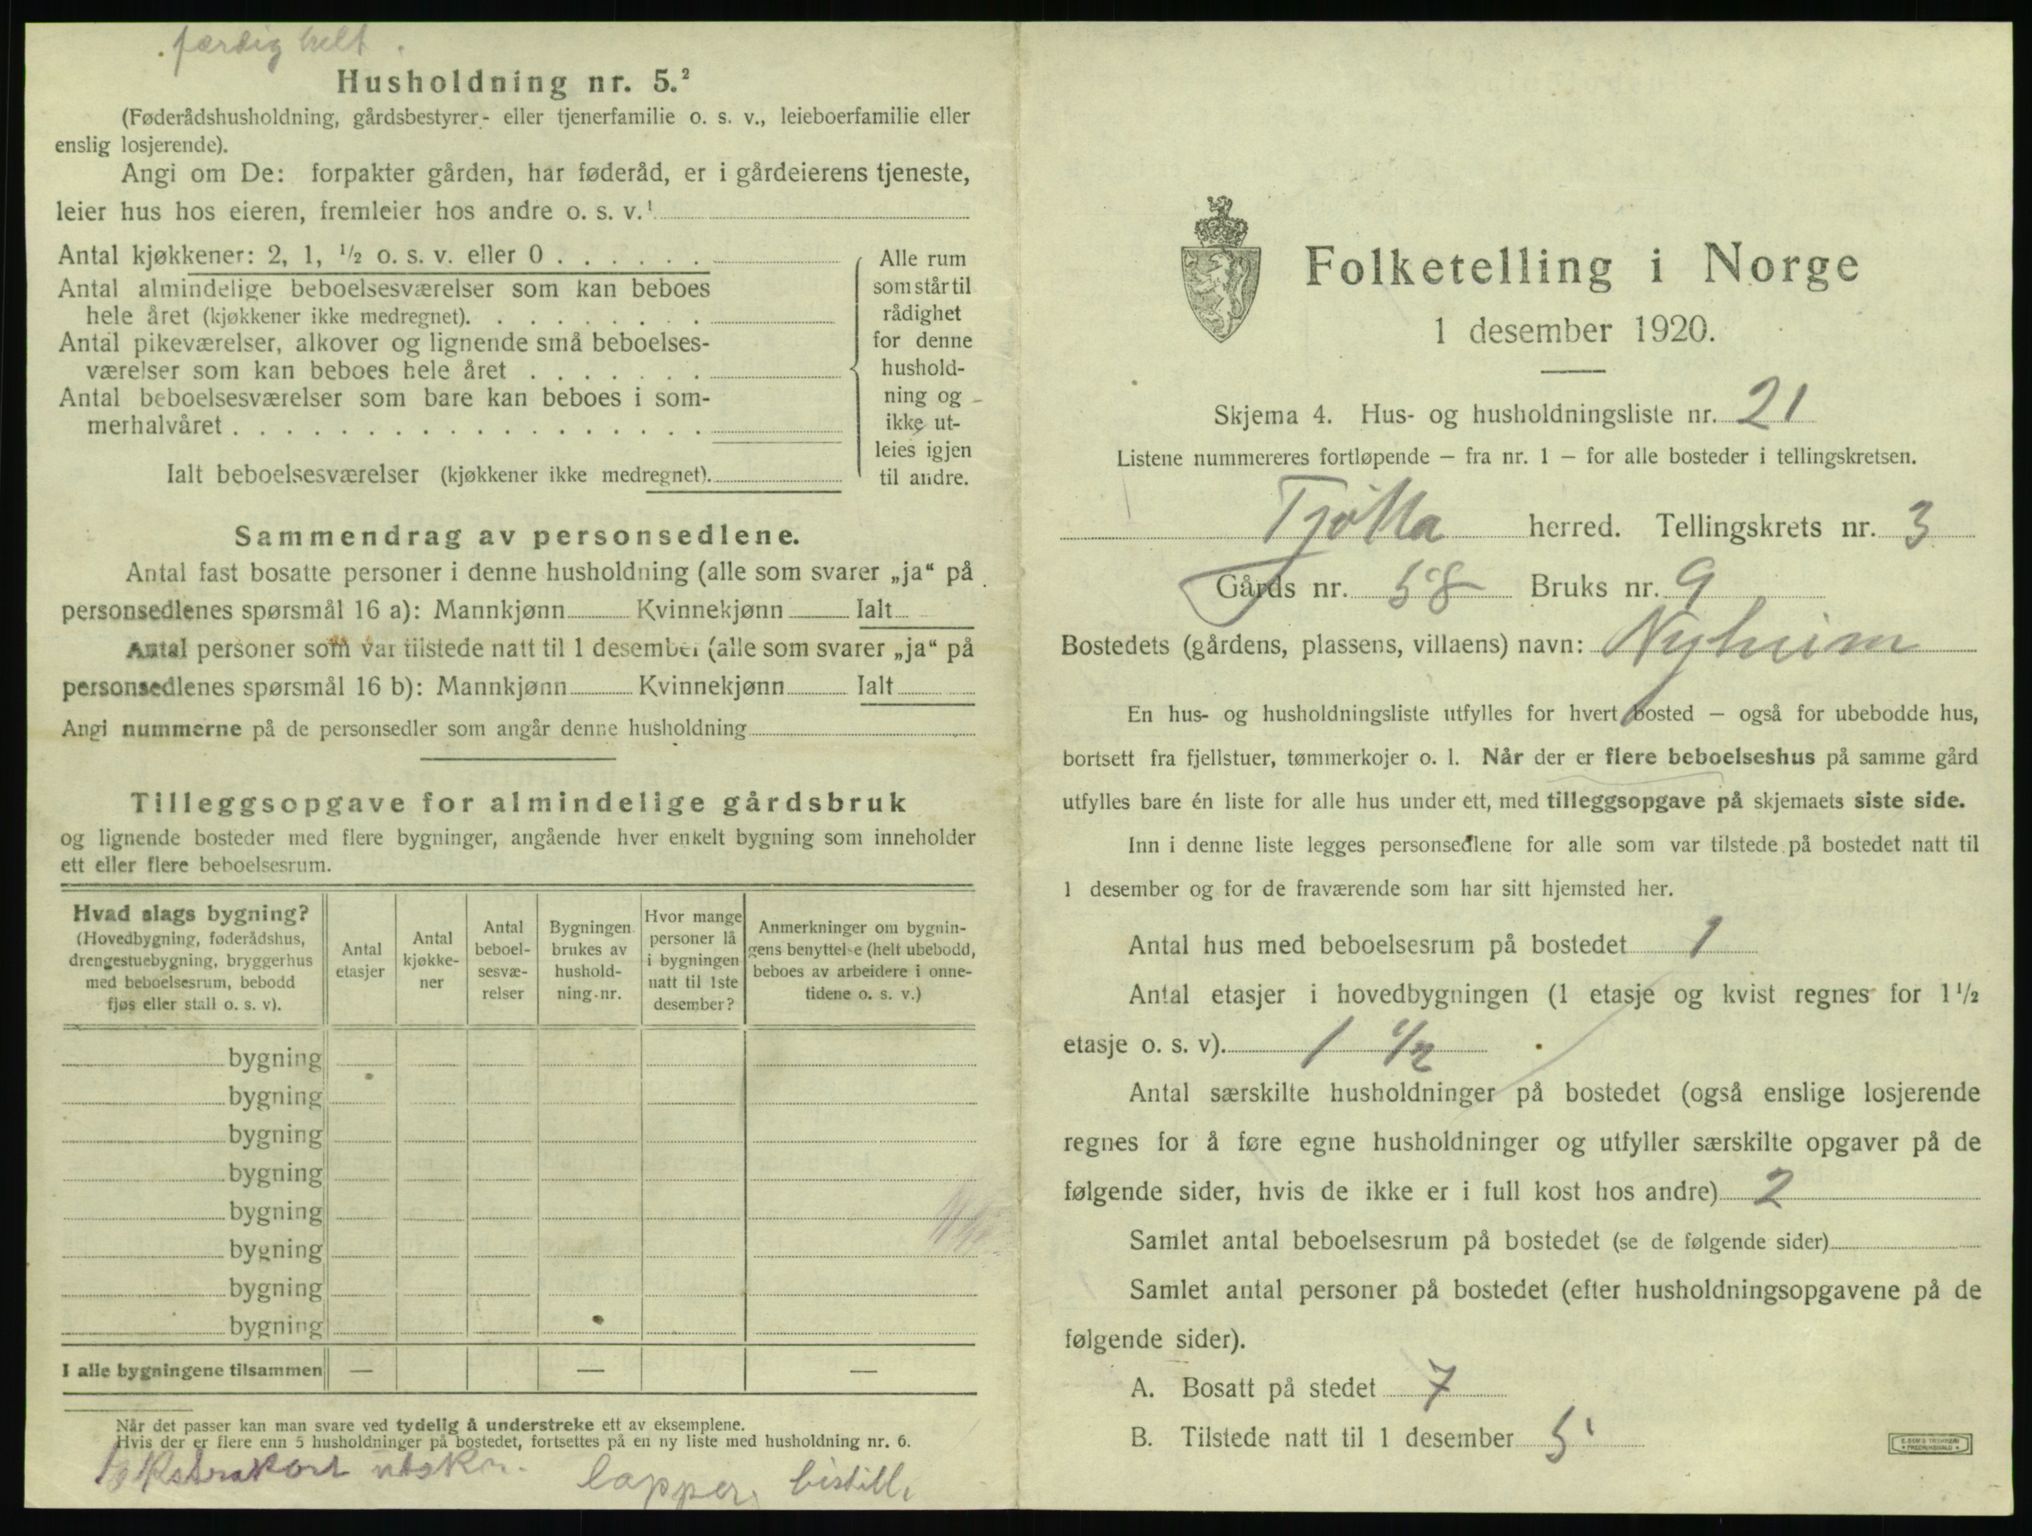 færdig helt.
Husholdning nr. 5.²
(Føderådshusholdning, gårdsbestyrer- eller tjenerfamilie o. s. v., leieboerfamilie eller
enslig losjerende).
Angi om De: forpakter gården, har føderåd, er i gårdeierens tjeneste,
leier hus hos eieren, fremleier hos andre o. s. v.¹
Antal kjøkkener: 2, 1, ½ o. s. v. eller 0
Antal almindelige beboelsesværelser som kan beboes
hele året (kjøkkener ikke medregnet).
Antal pikeværelser, alkover og lignende små beboelses-
værelser som kan beboes hele året
Antal beboelsesværelser som bare kan beboes i som-
merhalvåret
Ialt beboelsesværelser (kjøkkener ikke medregnet).
Alle rum
som står til
rådighet
for denne
hushold-
ning og
ikke ut-
leies igjen
til andre.
Sammendrag av personsedlene.
Antal fast bosatte personer i denne husholdning (alle som svarer „ja“ på
personsedlenes spørsmål 16 a): Mannkjønn Kvinnekjønn Ialt
Antal personer som var tilstede natt til 1 desember (alle som svarer „ja“ på
personsedlenes spørsmål 16 b): Mannkjønn Kvinnekjønn Ialt
Angi nummerne på de personsedler som angår denne husholdning
Tilleggsopgave for almindelige gårdsbruk
og lignende bosteder med flere bygninger, angående hver enkelt bygning som inneholder
ett eller flere beboelsesrum.
Hvad slags bygning?
(Hovedbygning, føderådshus,
drengestuebygning, bryggerhus
med beboelsesrum, bebodd
fjøs eller stall o. s. v).
Antal
etasjer
Antal
kjøkke-
ner
Antal
beboel-
sesvæ-
relser
Bygningen
brukes av
hushold-
ning-nr.
Hvor mange
personer lå
i bygningen
natt til 1ste
desember?
Anmerkninger om bygnin-
gens benyttelse (helt ubebodd,
beboes av arbeidere i onne-
tidene o. s. v.)
bygning
bygning
bygning
bygning
bygning
bygning
bygning
bygning
I alle bygningene tilsammen — — —
Når det passer kan man svare ved tydelig å understreke ett av eksemplene.
Hvis der er flere enn 5 husholdninger på bostedet, fortsettes på en ny liste med husholdning nr. 6.
lapper. bistill.
Folketelling i Norge
1 desember 1920.
Skjema 4. Hus- og husholdningsliste nr. 21
Listene nummereres fortløpende – fra nr. 1 – for alle bosteder i tellingskretsen.
Tjøtta herred. Tellingskrets nr. 3
Gårds nr. 58 Bruks nr. 9
Bostedets (gårdens, plassens, villaens) navn: Nyheim
En hus- og husholdningsliste utfylles for hvert bosted – også for ubebodde hus,
bortsett fra fjellstuer, tømmerkojer o. l. Når der er flere beboelseshus på samme gård
utfylles bare én liste for alle hus under ett, med tilleggsopgave på skjemaets siste side.
Inn i denne liste legges personsedlene for alle som var tilstede på bostedet natt til
1 desember og for de fraværende som har sitt hjemsted her.
Antal hus med beboelsesrum på bostedet 1
Antal etasjer i hovedbygningen (1 etasje og kvist regnes for 1½
etasje o. s. v). 1 ½
Antal særskilte husholdninger på bostedet (også enslige losjerende
regnes for å føre egne husholdninger og utfyller særskilte opgaver på de
følgende sider, hvis de ikke er i full kost hos andre) 2
Samlet antal beboelsesrum på bostedet (se de følgende sider)
Samlet antal personer på bostedet (efter husholdningsopgavene på de
følgende sider).
A. Bosatt på stedet 7
B. Tilstede natt til 1 desember 5